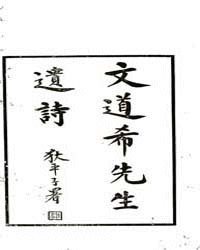 文道希先生
遺詩
狄平子署